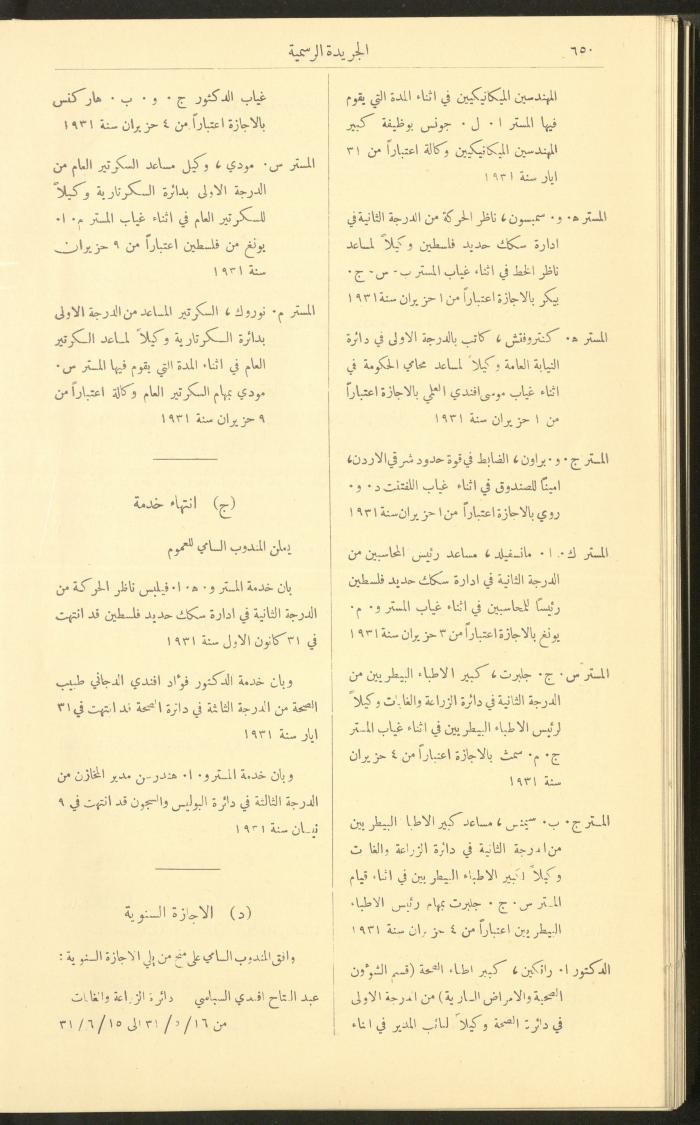 ٦٥٠
الجريدة الرسمية
المهندسين الميكانيكيين في اثناء المدة التي يقوم
فيها المستر ا٠ ل٠ جونس بوظيفة كبير
المهندسين الميكانيكيين وكالة اعتباراً من ٣١
ايار سنة ١٩٣١
المستر ه٠ و٠ سمبسون، ناظر الحركة من الدرجة الثانية في
ادارة سكك حديد فلسطين وكيلاً لمساعد
ناظر الخط في اثناء غياب المستر ب-س-ج٠
بيكر بالاجازة اعتباراً من ١ حزيران سنة ١٩٣١
المستر ه٠ كنتروفتش، كاتب بالدرجة الاولى في دائرة
النيابة العامة وكيلاً لمساعد محامي الحكومة في
اثناء غياب موسى افندي العلمي بالاجازة اعتباراً
من ١ حزيران سنة ١٩٣١
المستر ج٠ و٠ براون، الضابط في قوة حدود شرقي الاردن،
اميناً للصندوق في اثناء غياب اللفتنت د٠ و٠
روي بالاجازة اعتباراً من ١ حزيران سنة ١٩٣١
المستر ك٠ ا٠ مانسفيلد، مساعد رئيس المحاسبين من
الدرجة الثانية في ادارة سكك حديد فلسطين
رئيساً للمحاسبين في اثناء غياب المستر و٠ م٠
يونغ بالاجازة اعتباراً من ٣ حزيران سنة ١٩٣١
المستر س٠ ج٠ جلبرت، كبير الاطباء البيطريين من
الدرجة الثانية في دائرة الزراعة والغابات وكيلاً
لرئيس الاطباء البيطريين في اثناء غياب المستر
ج٠ م٠ سمث بالاجازة اعتباراً من ٤ حزيران
سنة ١٩٣١
المستر ج٠ ب٠ سيمنس، مساعد كبير الاطباء البيطريين
من الدرجة الثانية في دائرة الزراعة والغابات
وكيلاً لكبير الاطباء البيطريين في اثناء قيام
المستر س٠ ج٠ جلبرت بمهام رئيس الاطباء
البيطريين اعتباراً من ٤ حزيران سنة ١٩٣١
الدكتور ا٠ رافكين، كبير اطباء الصحة (قسم الشؤون
الصحية والامراض السارية) من الدرجة الاولى
في دائرة الصحة وكيلاً لنائب المدير في اثناء
غياب الدكتور ج٠ و٠ ب٠ هاركنس
بالاجازة اعتباراً من ٤ حزيران سنة ١٩٣١
المستر س٠ مودي، وكيل مساعد السكرتير العام من
الدرجة الاولى بدائرة السكرتارية وكيلاً
للسكرتير العام في اثناء غياب المستر م٠ ا٠
يونغ من فلسطين اعتباراً من ٩ حزيران
سنة ١٩٣١
المستر م٠ نوروك، السكرتير المساعد من الدرجة الاولى
بدائرة السكرتارية وكيلاً لمساعد السكرتير
العام في اثناء المدة التي يقوم فيها المستر س٠
مودي بمهام السكرتير العام وكالة اعتباراً من
٩ حزيران سنة ١٩٣١
(ج) انتهاء خدمة
يعلن المندوب السامي للعموم
بان خدمة المستر و٠ ه٠ ا٠ فيلبس ناظر الحركة من
الدرجة الثانية في ادارة سكك حديد فلسطين قد انتهت
في ٣١ كانون الاول سنة ١٩٣١
وبان خدمة الدكتور فؤاد افندي الدجاني طبيب
الصحة من الدرجة الثالثة في دائرة الصحة قد انتهت في ٣١
ايار سنة ١٩٣١
وبان خدمة المستر و٠ ا٠ هندرسن مدير المخازن من
الدرجة الثالثة في دائرة البوليس والسجون قد انتهت في ٩
نيسان سنة ١٩٣١
(د) الاجازة السنوية
وافق المندوب السامي على منح من يلي الاجازة السنوية :
عبد الفتاح افندي السباسي دائرة الزراعة والغابات
من ١٦/٥/٣١ الى ١٥/٦/٣١